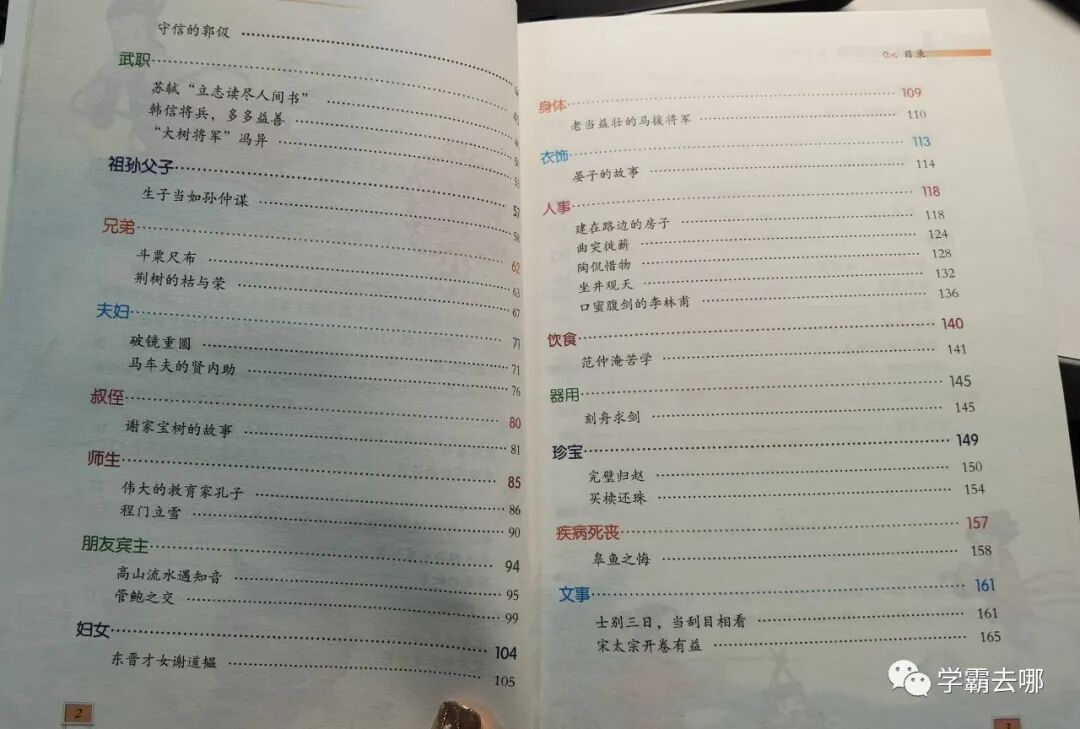 守信的郭伋
武职
苏轼“立志读尽人间书”
韩信将兵，多多益善
“大树将军”冯异 53
祖孙父子 57
生子当如孙仲谋 58
兄弟 62
斗粟尺布 63
荆树的枯与荣 67
夫妇 71
破镜重圆 71
马车夫的贤内助 76
叔侄 80
谢家宝树的故事 81
师生 85
伟大的教育家孔子 86
程门立雪 90
朋友宾主 94
高山流水遇知音 95
管鲍之交 99
妇女 104
东晋才女谢道韫 105
2
目录
身体 109
老当益壮的马援将军 110
衣饰 113
晏子的故事 114
人事 118
建在路边的房子 118
曲突徙薪 124
陶侃惜物 128
坐井观天 132
口蜜腹剑的李林甫 136
饮食 140
范仲淹苦学 141
器用 145
刻舟求剑 145
珍宝 149
完璧归赵 150
买椟还珠 154
疾病死丧 157
皋鱼之悔 158
文事 161
士别三日，当刮目相看 161
宋太宗开卷有益 165
学霸去哪
3